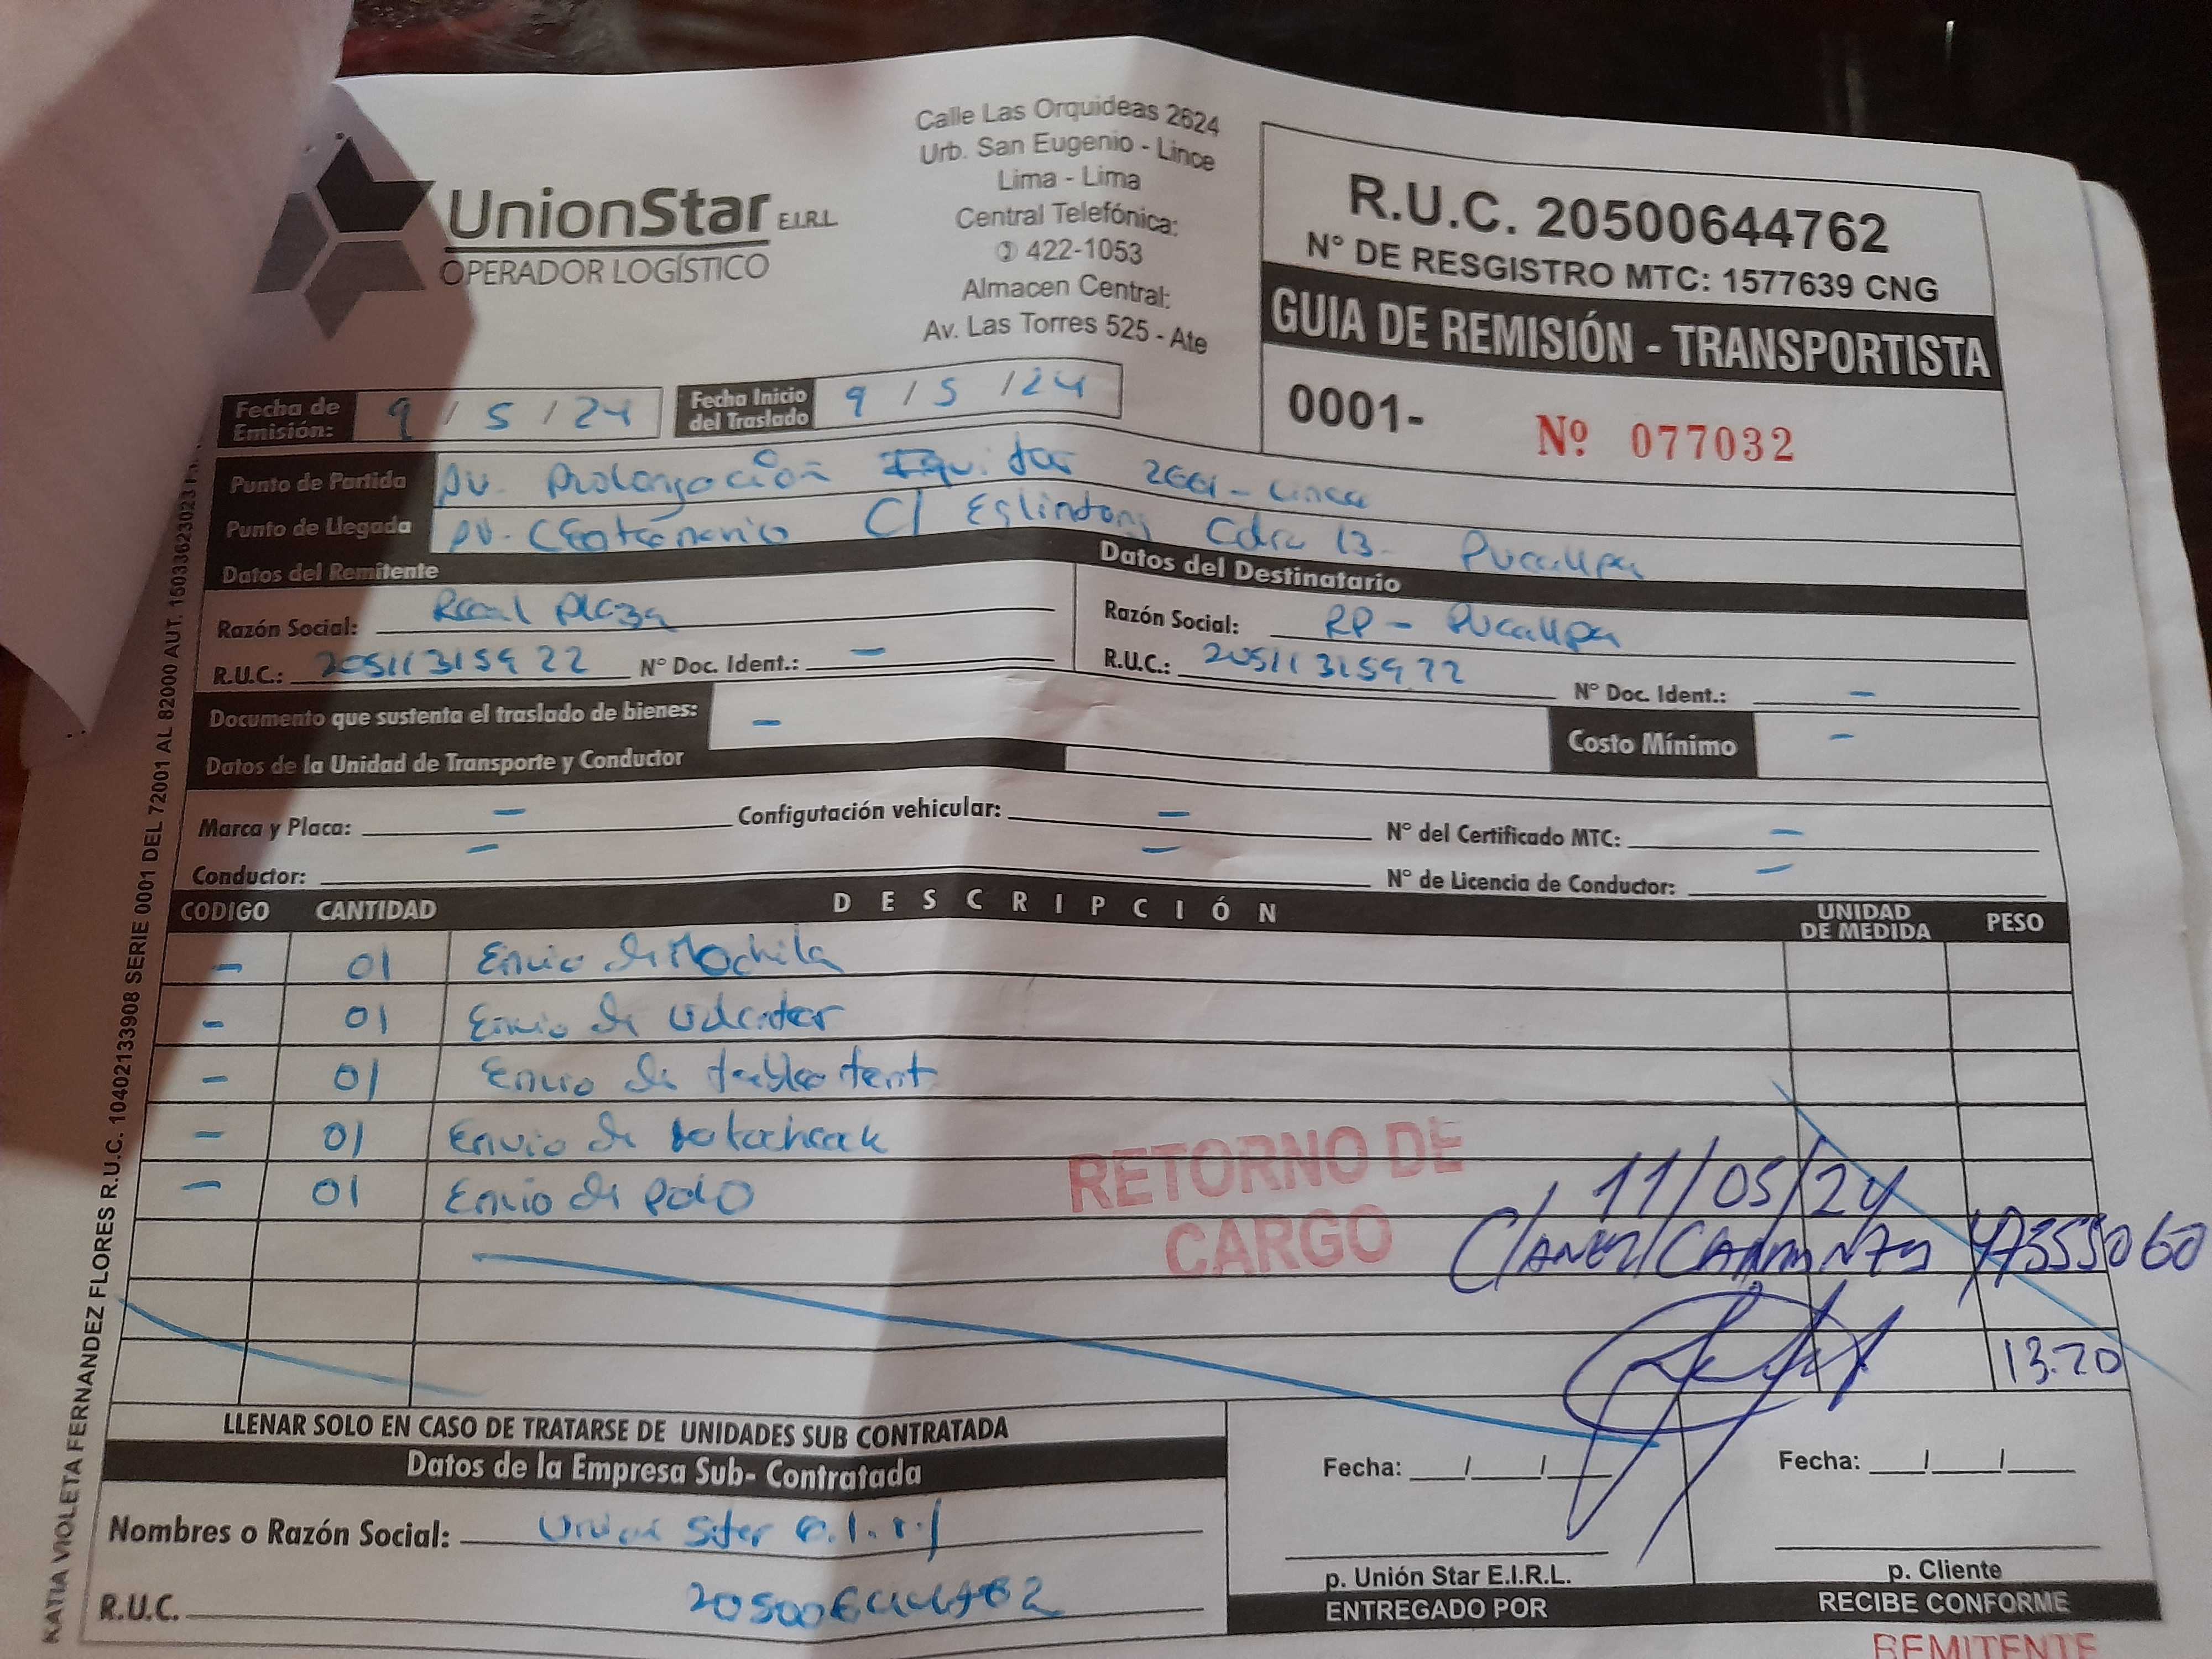 UnionStar E.I.R.L.
OPERADOR LOGÍSTICO
Calle Las Orquideas 2624
Urb. San Eugenio - Lince
Lima - Lima
Central Telefónica:
422-1053
Almacen Central:
Av. Las Torres 525 - Ate
R.U.C. 20500644762
N° DE RESGISTRO MTC: 1577639 CNG
GUIA DE REMISIÓN - TRANSPORTISTA
0001- Nº 077032
Fecha de Emisión: 9 / 5 / 24
Fecha Inicio del Traslado 9 / 5 / 24
Punto de Partida Av. Prolongación Iquitos 2661 - Lince
Punto de Llegada Av. Centenario C/ Eglinton Cdra 13 - Pucallpa
Datos del Remitente
Datos del Destinatario
Razón Social: Real Plaza
Razón Social: RP - Pucallpa
R.U.C.: 20511315922 N° Doc. Ident.: -
R.U.C.: 20511315922 N° Doc. Ident.: -
Documento que sustenta el traslado de bienes: -
Costo Mínimo -
Datos de la Unidad de Transporte y Conductor
Marca y Placa: - Configutación vehicular: - N° del Certificado MTC: -
Conductor: - - N° de Licencia de Conductor: -
CODIGO CANTIDAD DESCRIPCIÓN UNIDAD DE MEDIDA PESO
- 01 Envio de Mochila
- 01 Envio de
- 01 Envio de tent
- 01 Envio de
- 01 Envio de polo
RETORNO DE
CARGO
11/05/24
13.20
LLENAR SOLO EN CASO DE TRATARSE DE UNIDADES SUB CONTRATADA
Datos de la Empresa Sub- Contratada
Nombres o Razón Social: Union Star e.i.r.l
R.U.C. 20500644762
Fecha: ___/___/___
p. Unión Star E.I.R.L.
ENTREGADO POR
Fecha: ___/___/___
p. Cliente
RECIBE CONFORME
REMITENTE
KATIA VIOLETA FERNANDEZ FLORES R.U.C. 10402133908 SERIE 0001 DEL 72001 AL 82000 AUT. 15033623023